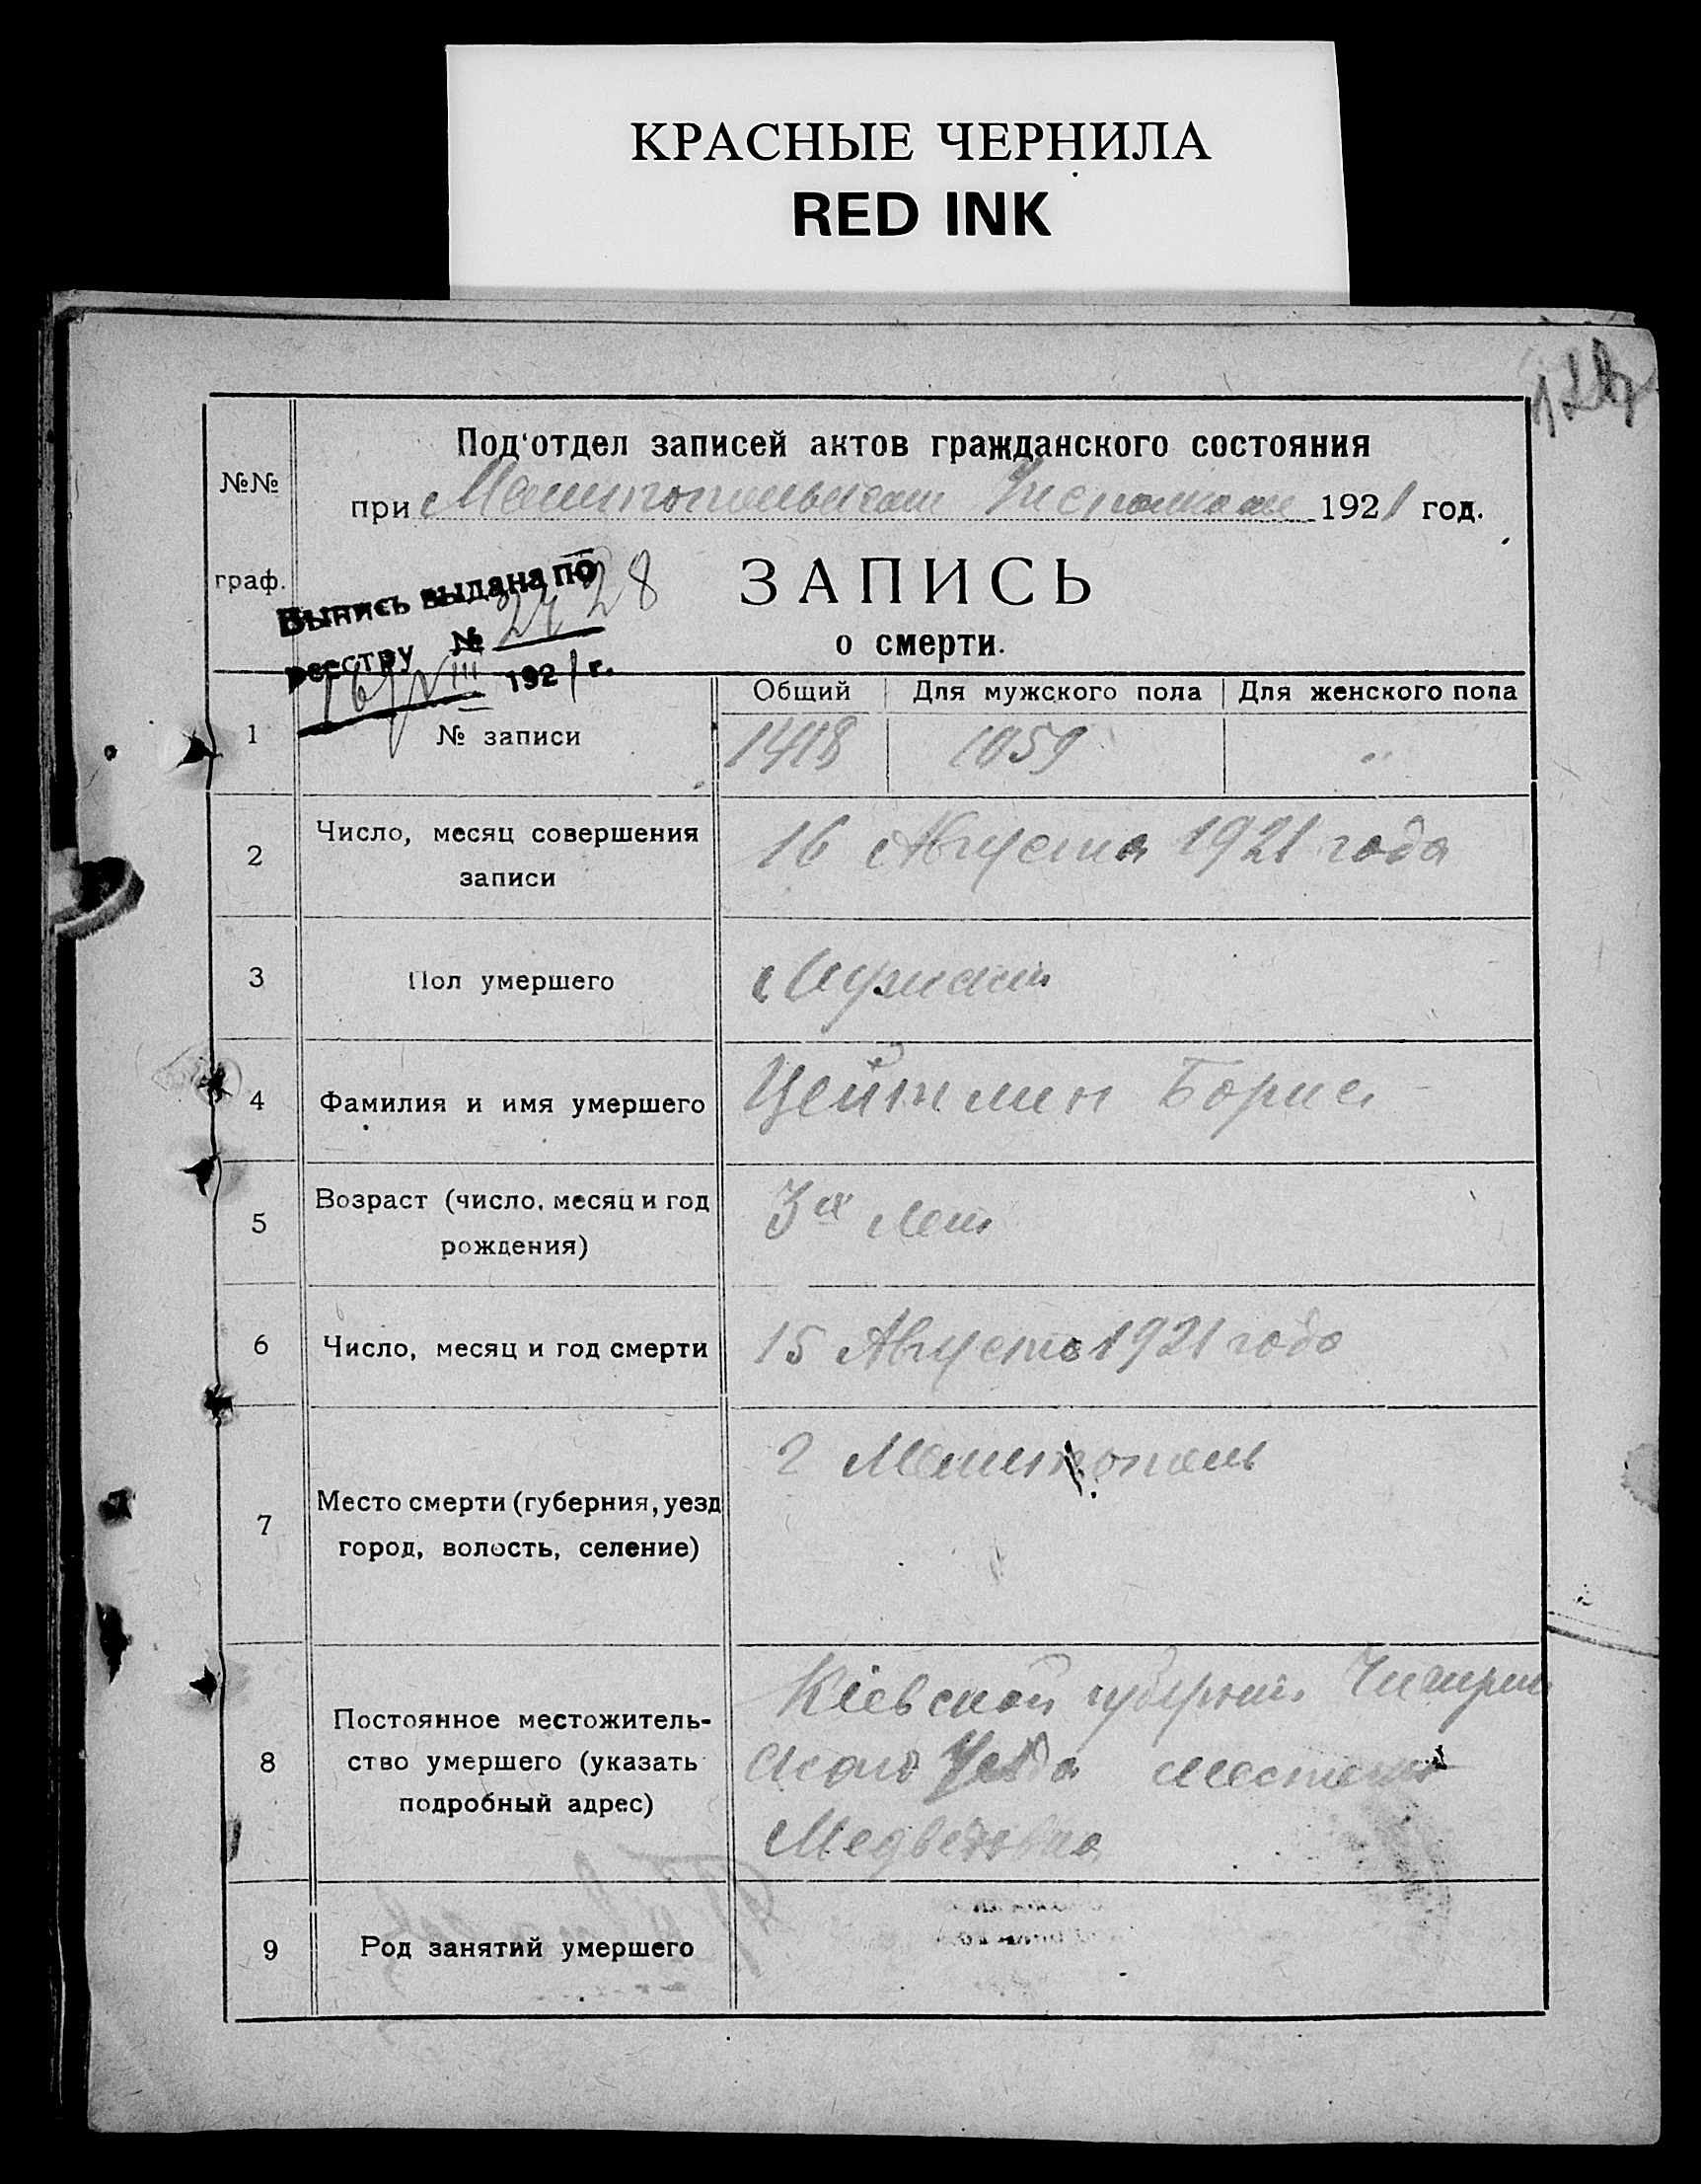 КРАСНЫЕ ЧЕРНИЛА
RED INK
Под'отдел записей актов гражданского состояния
№№
при Мелитопольском Исполкоме 1921 год.
граф.
ЗАПИСЬ
о смерти.
Выпись выдана по
реестру №
16/VIII 1921 г.
Общий Для мужского пола Для женского пола
1 № записи 1418 1059 "
2 Число, месяц совершения
записи
16 Августа 1921 года
3 Пол умершего Мужской
4 Фамилия и имя умершего Цейтлин Борис
5 Возраст (число, месяц и год
рождения)
3х лет
6 Число, месяц и год смерти 15 Августа 1921 года
7 Место смерти (губерния, уезд
город, волость, селение)
г Мелитополь
8 Постоянное местожитель-
ство умершего (указать
подробный адрес)
Кіевской губернии Чигирин
ского Уезда местечко
Медвѣдовка
9 Род занятий умершего